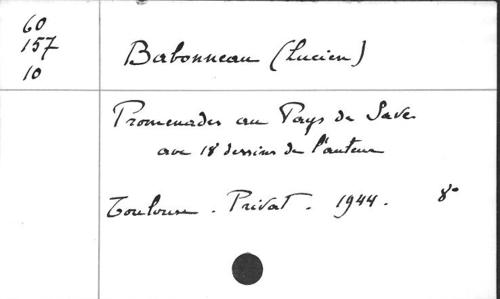 60
157
10
Babonneau (Lucien)
Promenades au Pays de Save
avec 18 dessins de l'auteur
Toulouse. Privat. 1944. 8°